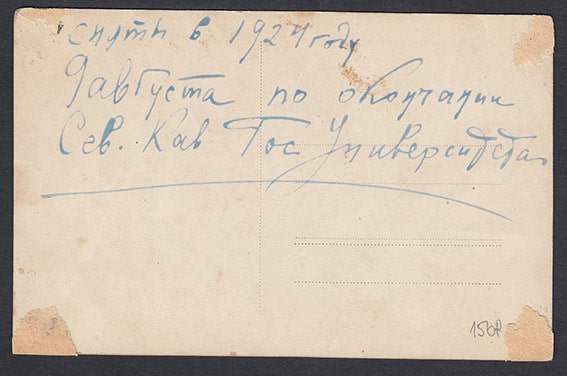 сняты в 1924 году
9 августа по окончании
Сев. Кав Гос Университета